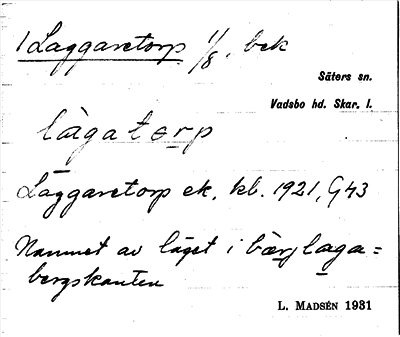 1 Laggaretorp 1/8, bek
Säters sn.
Vadsbo hd. Skar. l.
làgatorp
Läggaretorp ek. kb. 1921, G43
Namnet av läget i bærjlaga=
bergskanten
L. MADSÉN 1931